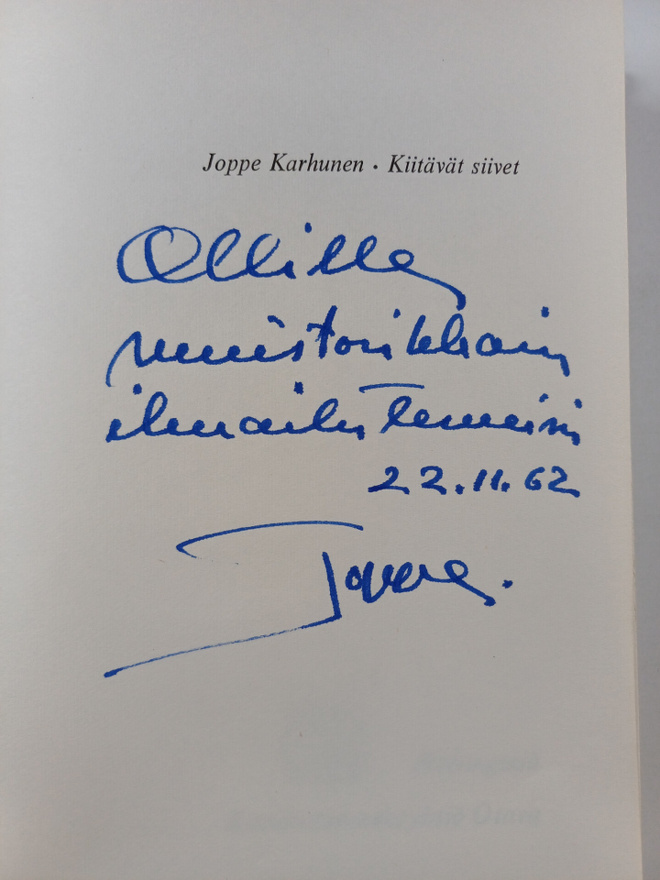 Joppe Karhunen · Kiitävät siivet
Ollille
muistorikkain
ilmailuterveisin
22.11.62
Joppe.